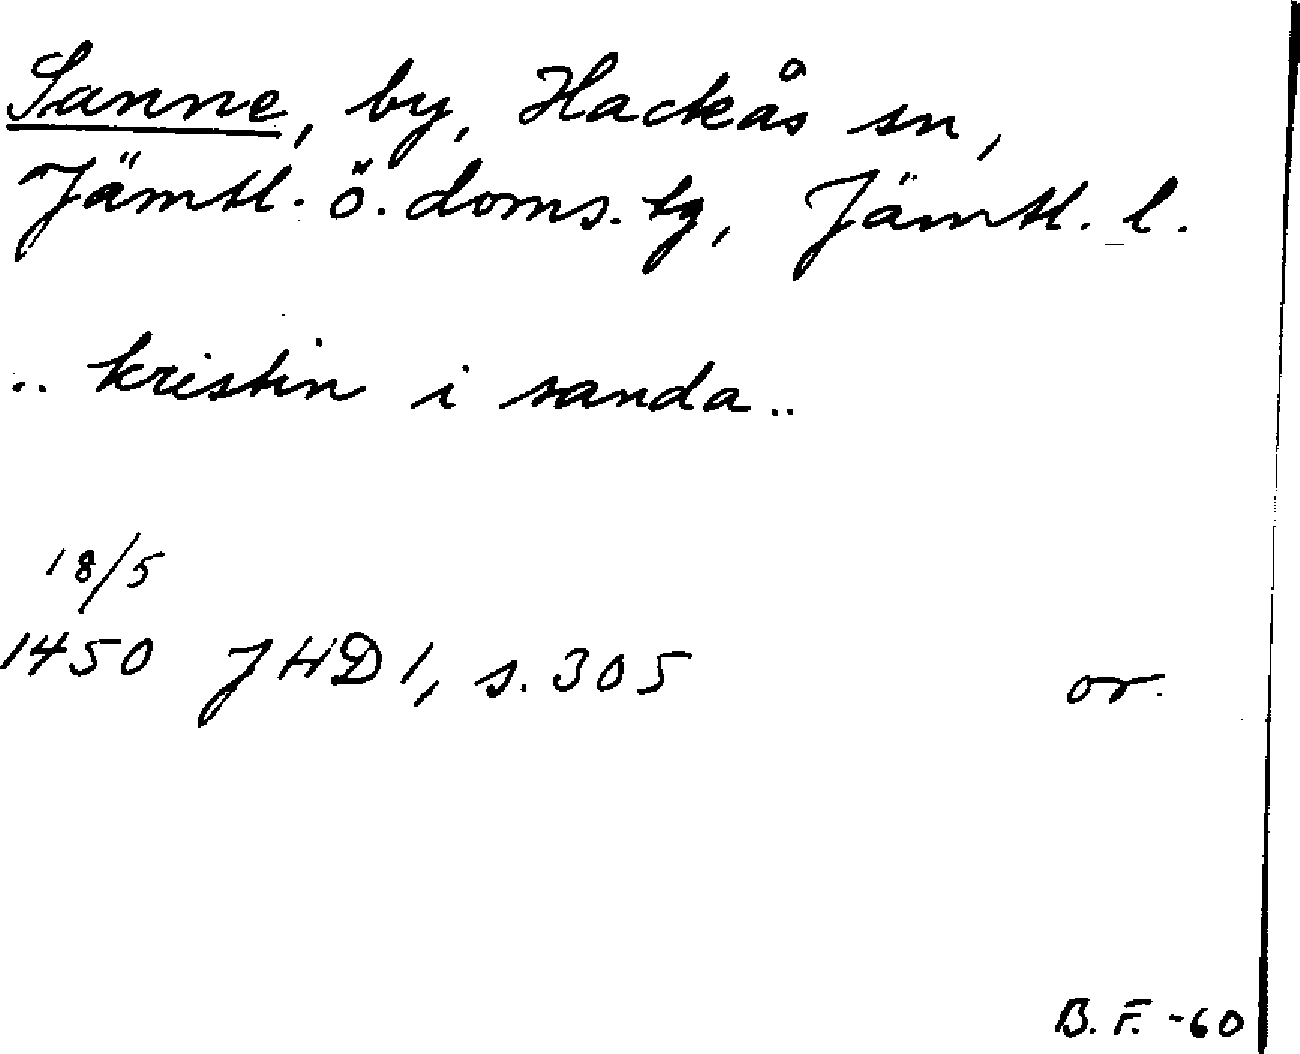 Sanne, by, Hackås sn,
Jämtl. ö. doms. tg, Jämtl. l.
.. kristin i sanda ..
18/5
1450 JHD 1, s. 305 or.
B. F. -60